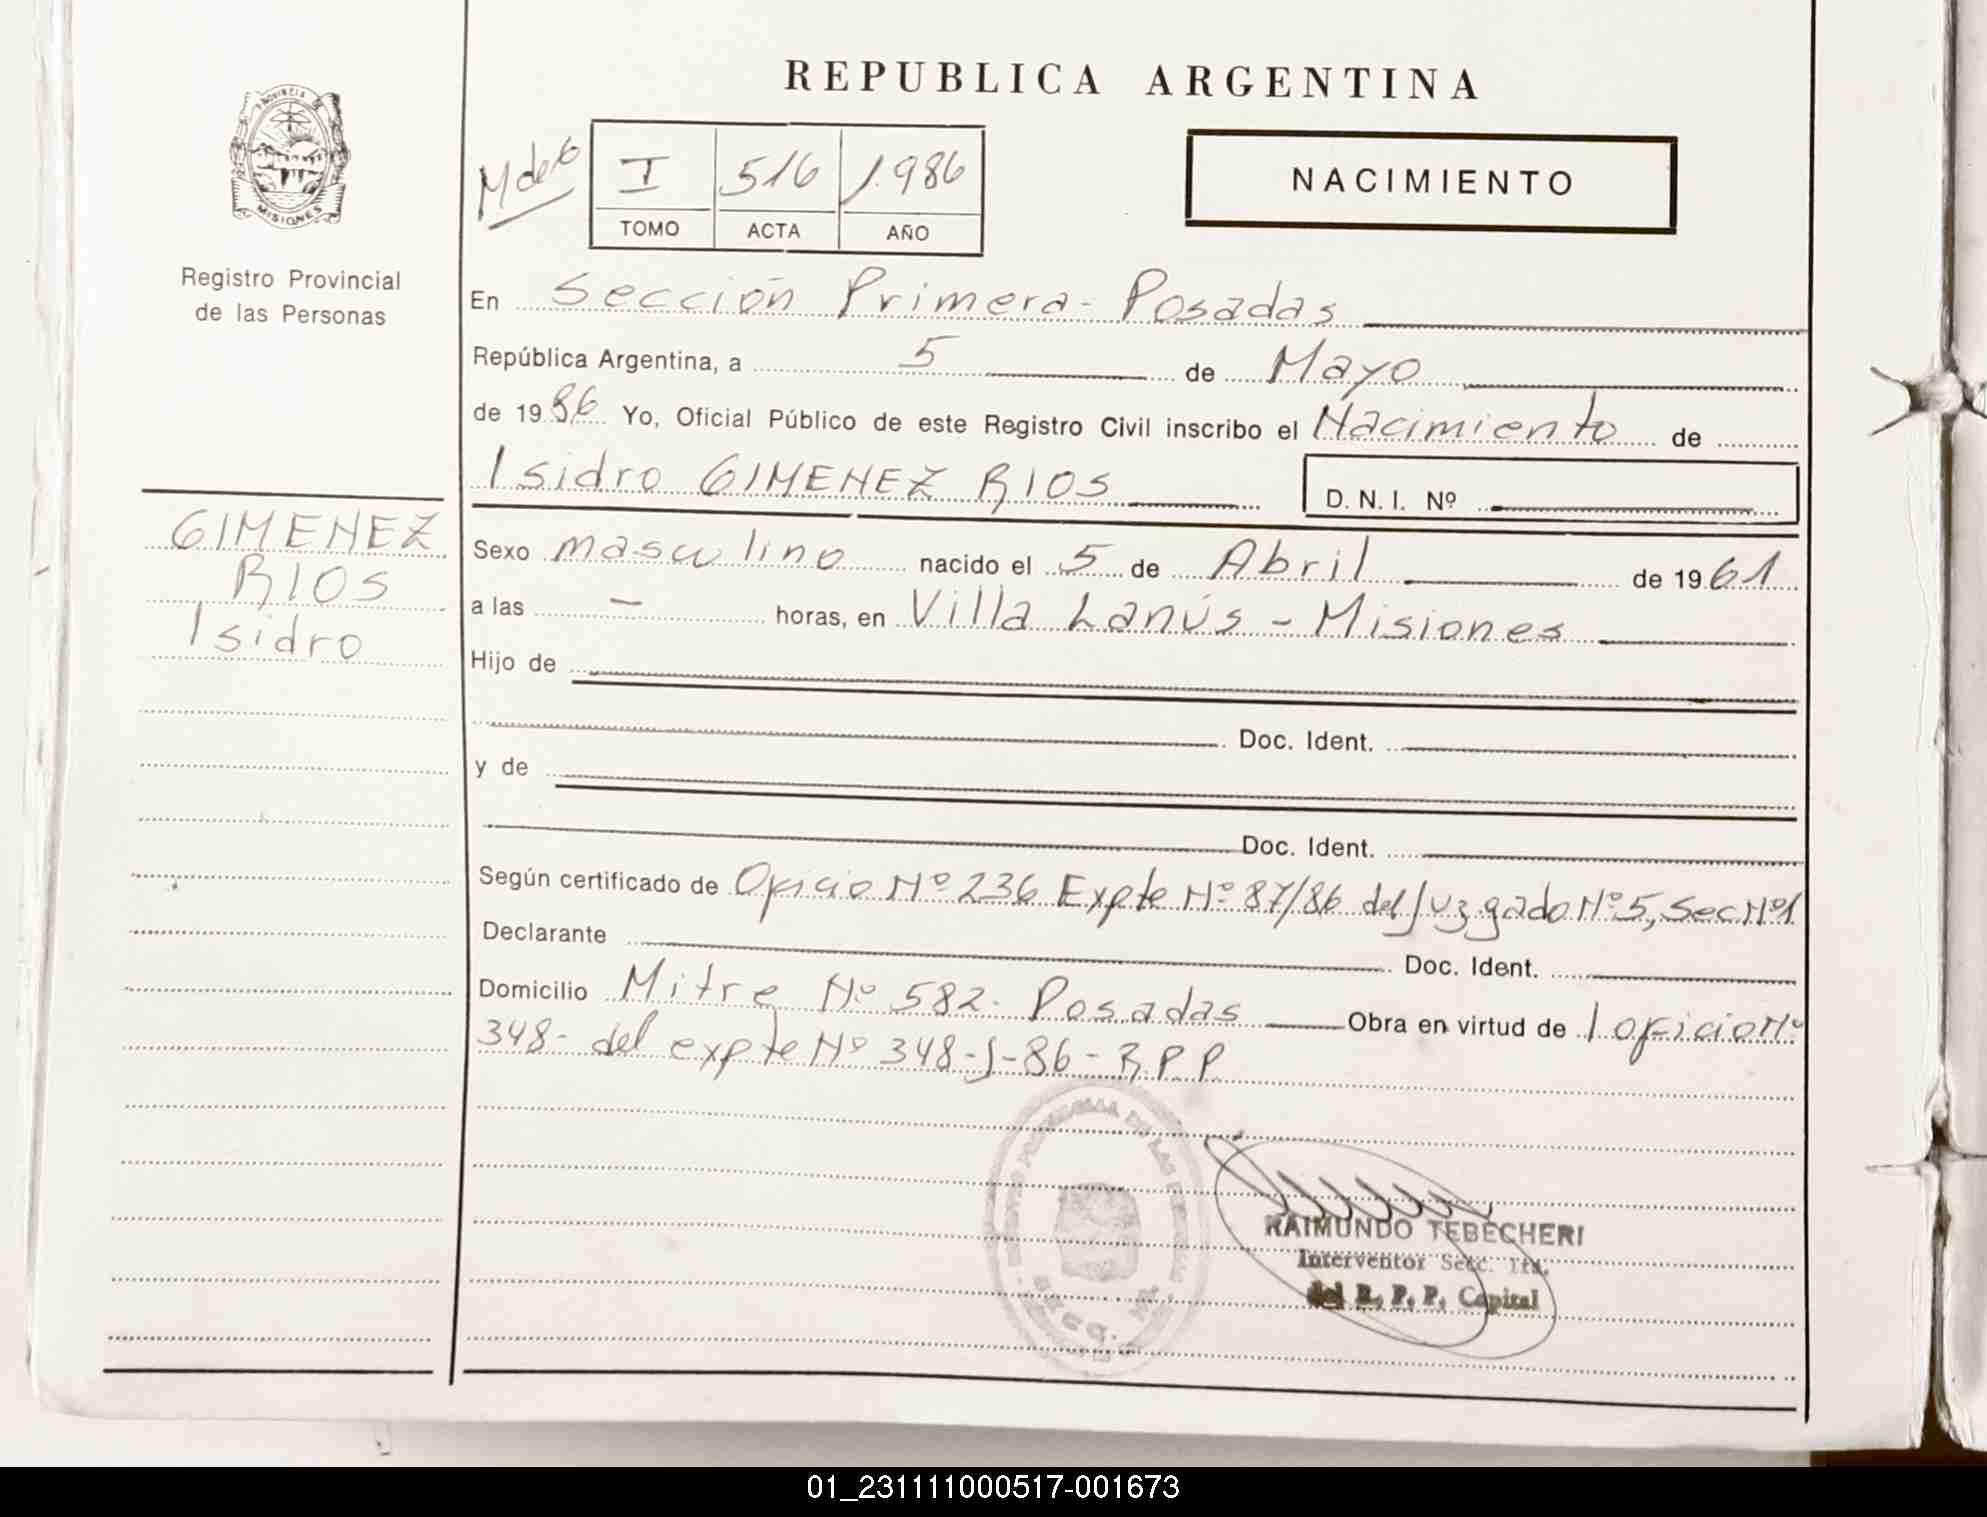 REPUBLICA ARGENTINA
PROVINCIA DE
MISIONES
Registro Provincial
de las Personas
I 516 1.986
TOMO ACTA AÑO
NACIMIENTO
En Sección Primera - Posadas
República Argentina, a 5 de Mayo
de 1986 Yo, Oficial Público de este Registro Civil inscribo el Nacimiento de
Isidro GIMENEZ RIOS D. N. I. Nº
GIMENEZ
RIOS
Isidro
Sexo masculino nacido el 5 de Abril de 1961
a las - horas, en Villa Lanús - Misiones
Hijo de
Doc. Ident.
y de
Doc. Ident.
Según certificado de Oficio Nº 236 Expte Nº 87/86 del Juzgado Nº 5, Sec Nº 1
Declarante Doc. Ident.
Domicilio Mitre Nº 582. Posadas Obra en virtud de 1 oficio Nº
348- del expte Nº 348-J-86- R.P.P.
RAIMUNDO TEBECHERI
Interventor Secc. 1ra.
del R. P. P. Capital
01_231111000517-001673